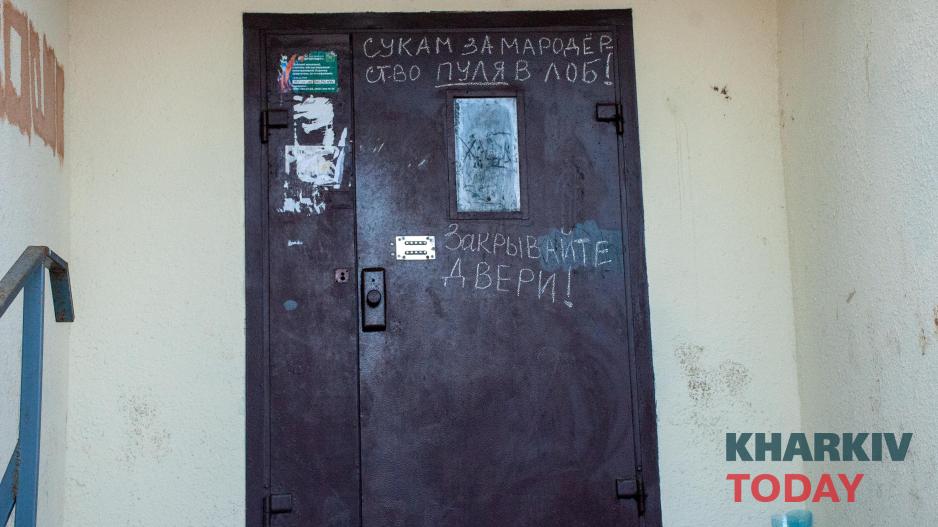 СУКАМ ЗА МАРОДЁР
СТВО ПУЛЯ В ЛОБ!
ЗАКРЫВАЙТЕ
ДВЕРИ!
KHARKIV
TODAY